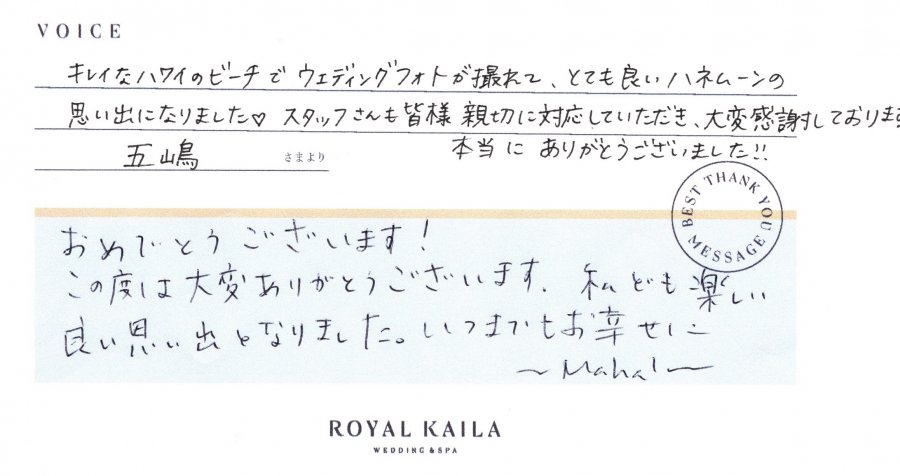 VOICE
キレイなハワイのビーチで ウェディングフォトが撮れて、とても良いハネムーンの
思い出になりました♡ スタッフさんも皆様 親切に対応していただき、大変感謝しております
本当に ありがとうございました!!
五嶋 さまより
BEST THANK YOU MESSAGE
おめでとうございます!
この度は大変ありがとうございます. 私ども楽しい
良い思い出となりました。いつまでもお幸せに
〜Mahalo〜
ROYAL KAILA
WEDDING & SPA